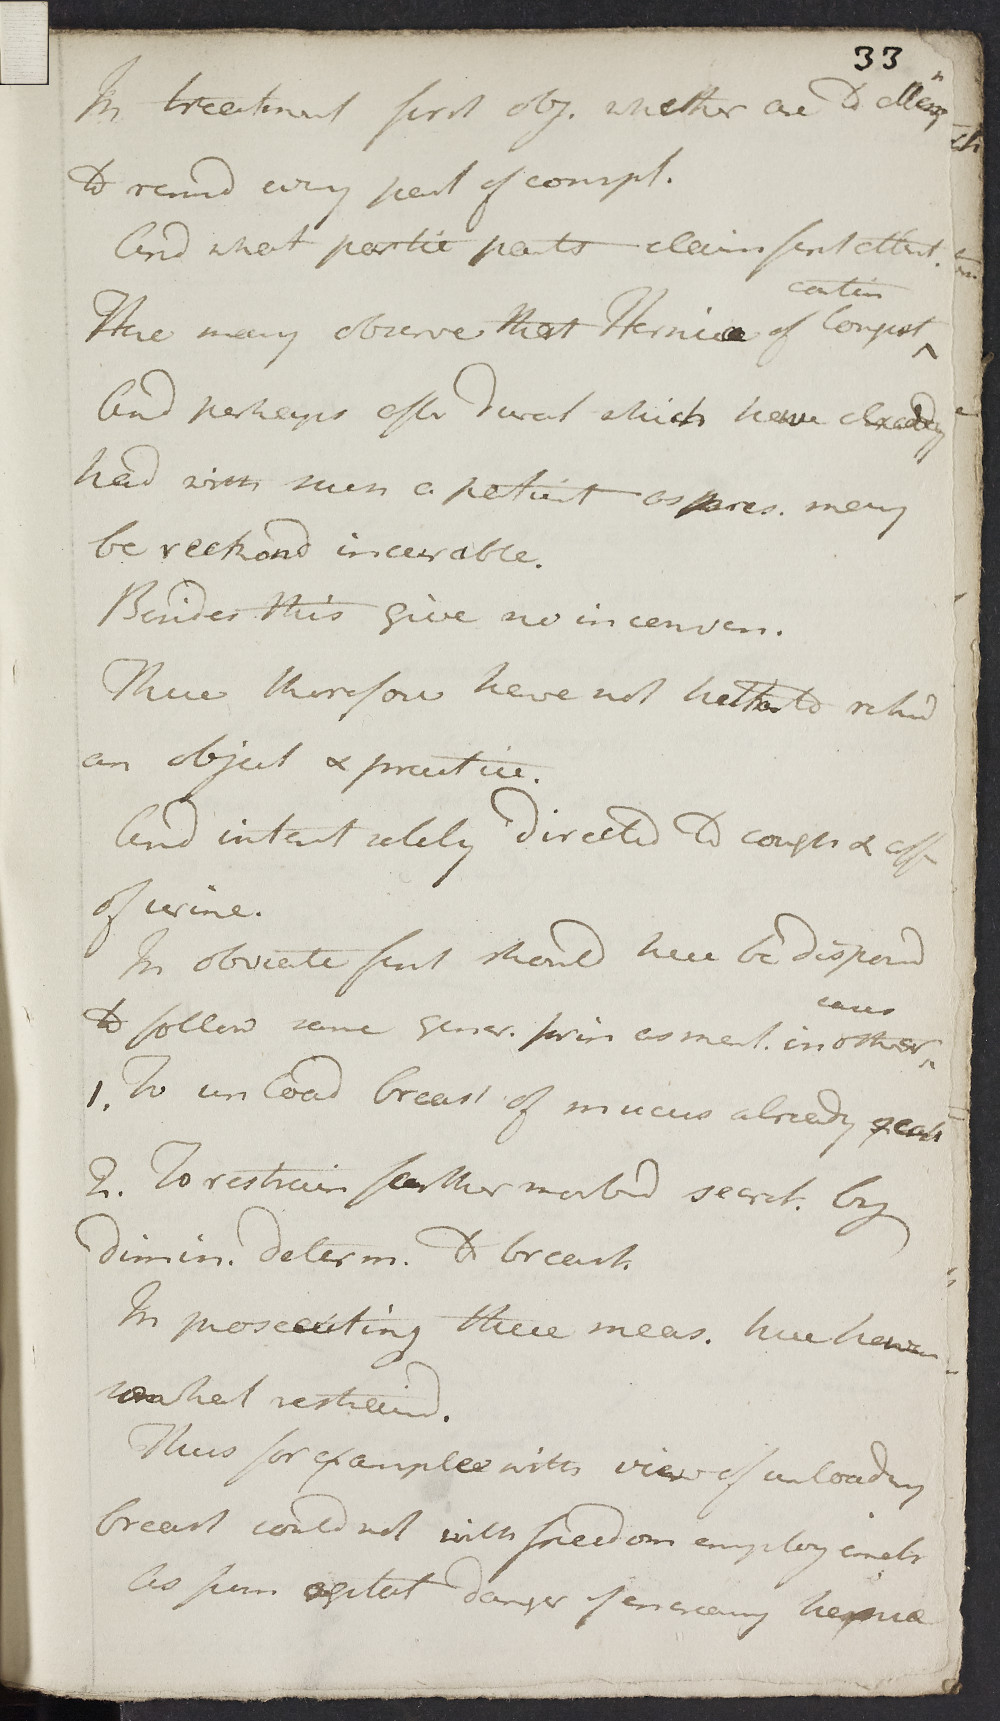 33
In treatment first obj. whether are to attemp
to remd every part of compl.
And what partic parts claim first attent.
Here may observe that Hernia of long contin
And perhaps after Durat which have already
had with such a patient as pres. may
be reckond incurable.
Besides this give no inconven.
These therefore have not hitherto
an object & practice.
And intent solely directed to cough & aff
of urine.
In obviate first should here be disposd
to follow same gener. prin as ment. in other cases
1. To unload breast of mucus already
2. To restrain further morbid secret. by
dimin. determ. to breast.
In prosecuting these meas. here however
somewhat restraind.
Thus for example with view of unloading
breast could not with freedom employ emetr
As from agitat danger of encreasing hernia